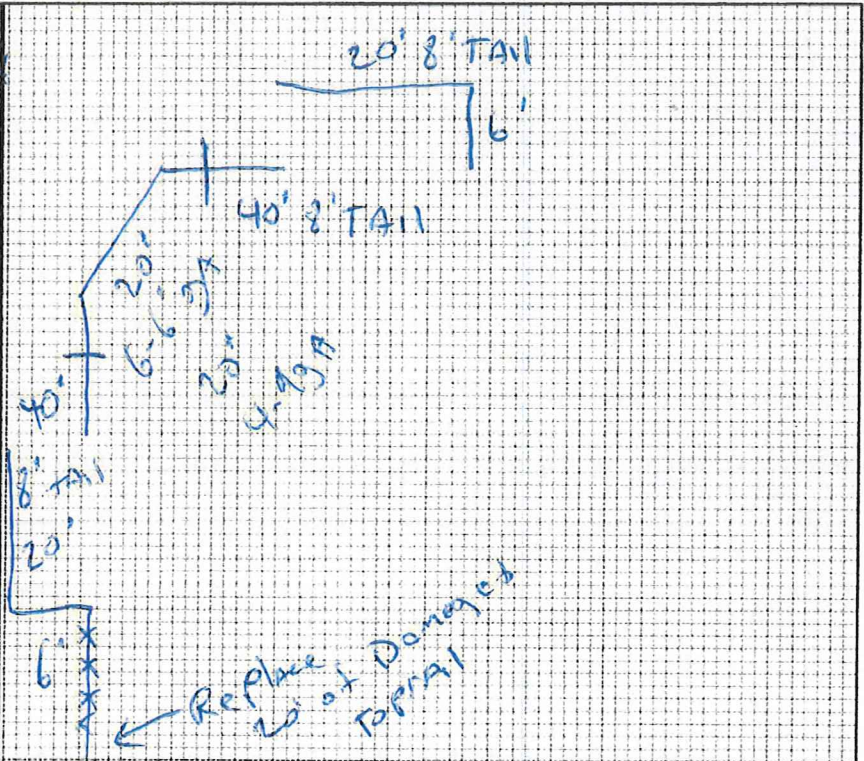 20' 8' TAll
6'
40' 8' TAll
20'
20'
40'
8' TAll
20'
6'
Replace
20' of Damaged
TOPRAIl